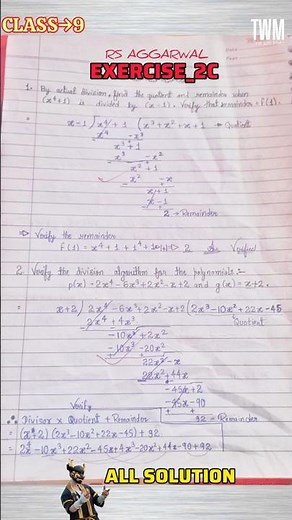 CLASS→9
TWM
RS AGGARWAL
EXERCISE_2C
1. By actual division, find the quotient and remainder when
(x⁴+1) is divided by (x-1). Verify that remainder = f(1).
x-1) x⁴+1 (x³+x²+x+1 → Quotient
x⁴ -x³
x³+1
x³ -x²
x²+1
x² -x
x+1
x-1
2 → Remainder
⇒ Verify the remainder
2 Verified
2. Verify the division algorithm for the polynomials:-
p(x)=2x⁴-6x³+2x²-x+2 and g(x)=x+2.
x+2) 2x⁴-6x³+2x²-x+2 (2x³-10x²+22x-45
Quotient
2x⁴+4x³
-10x³+2x²
-10x³-20x²
22x²-x
22x²+44x
-45x+2
-45x-90
92 → Remainder
Verify
∴ Divisor x Quotient + Remainder
= (x+2) (2x³-10x²+22x-45) + 92
= 2x⁴-10x³+22x²-45x+4x³-20x²+44x-90+92
ALL SOLUTION